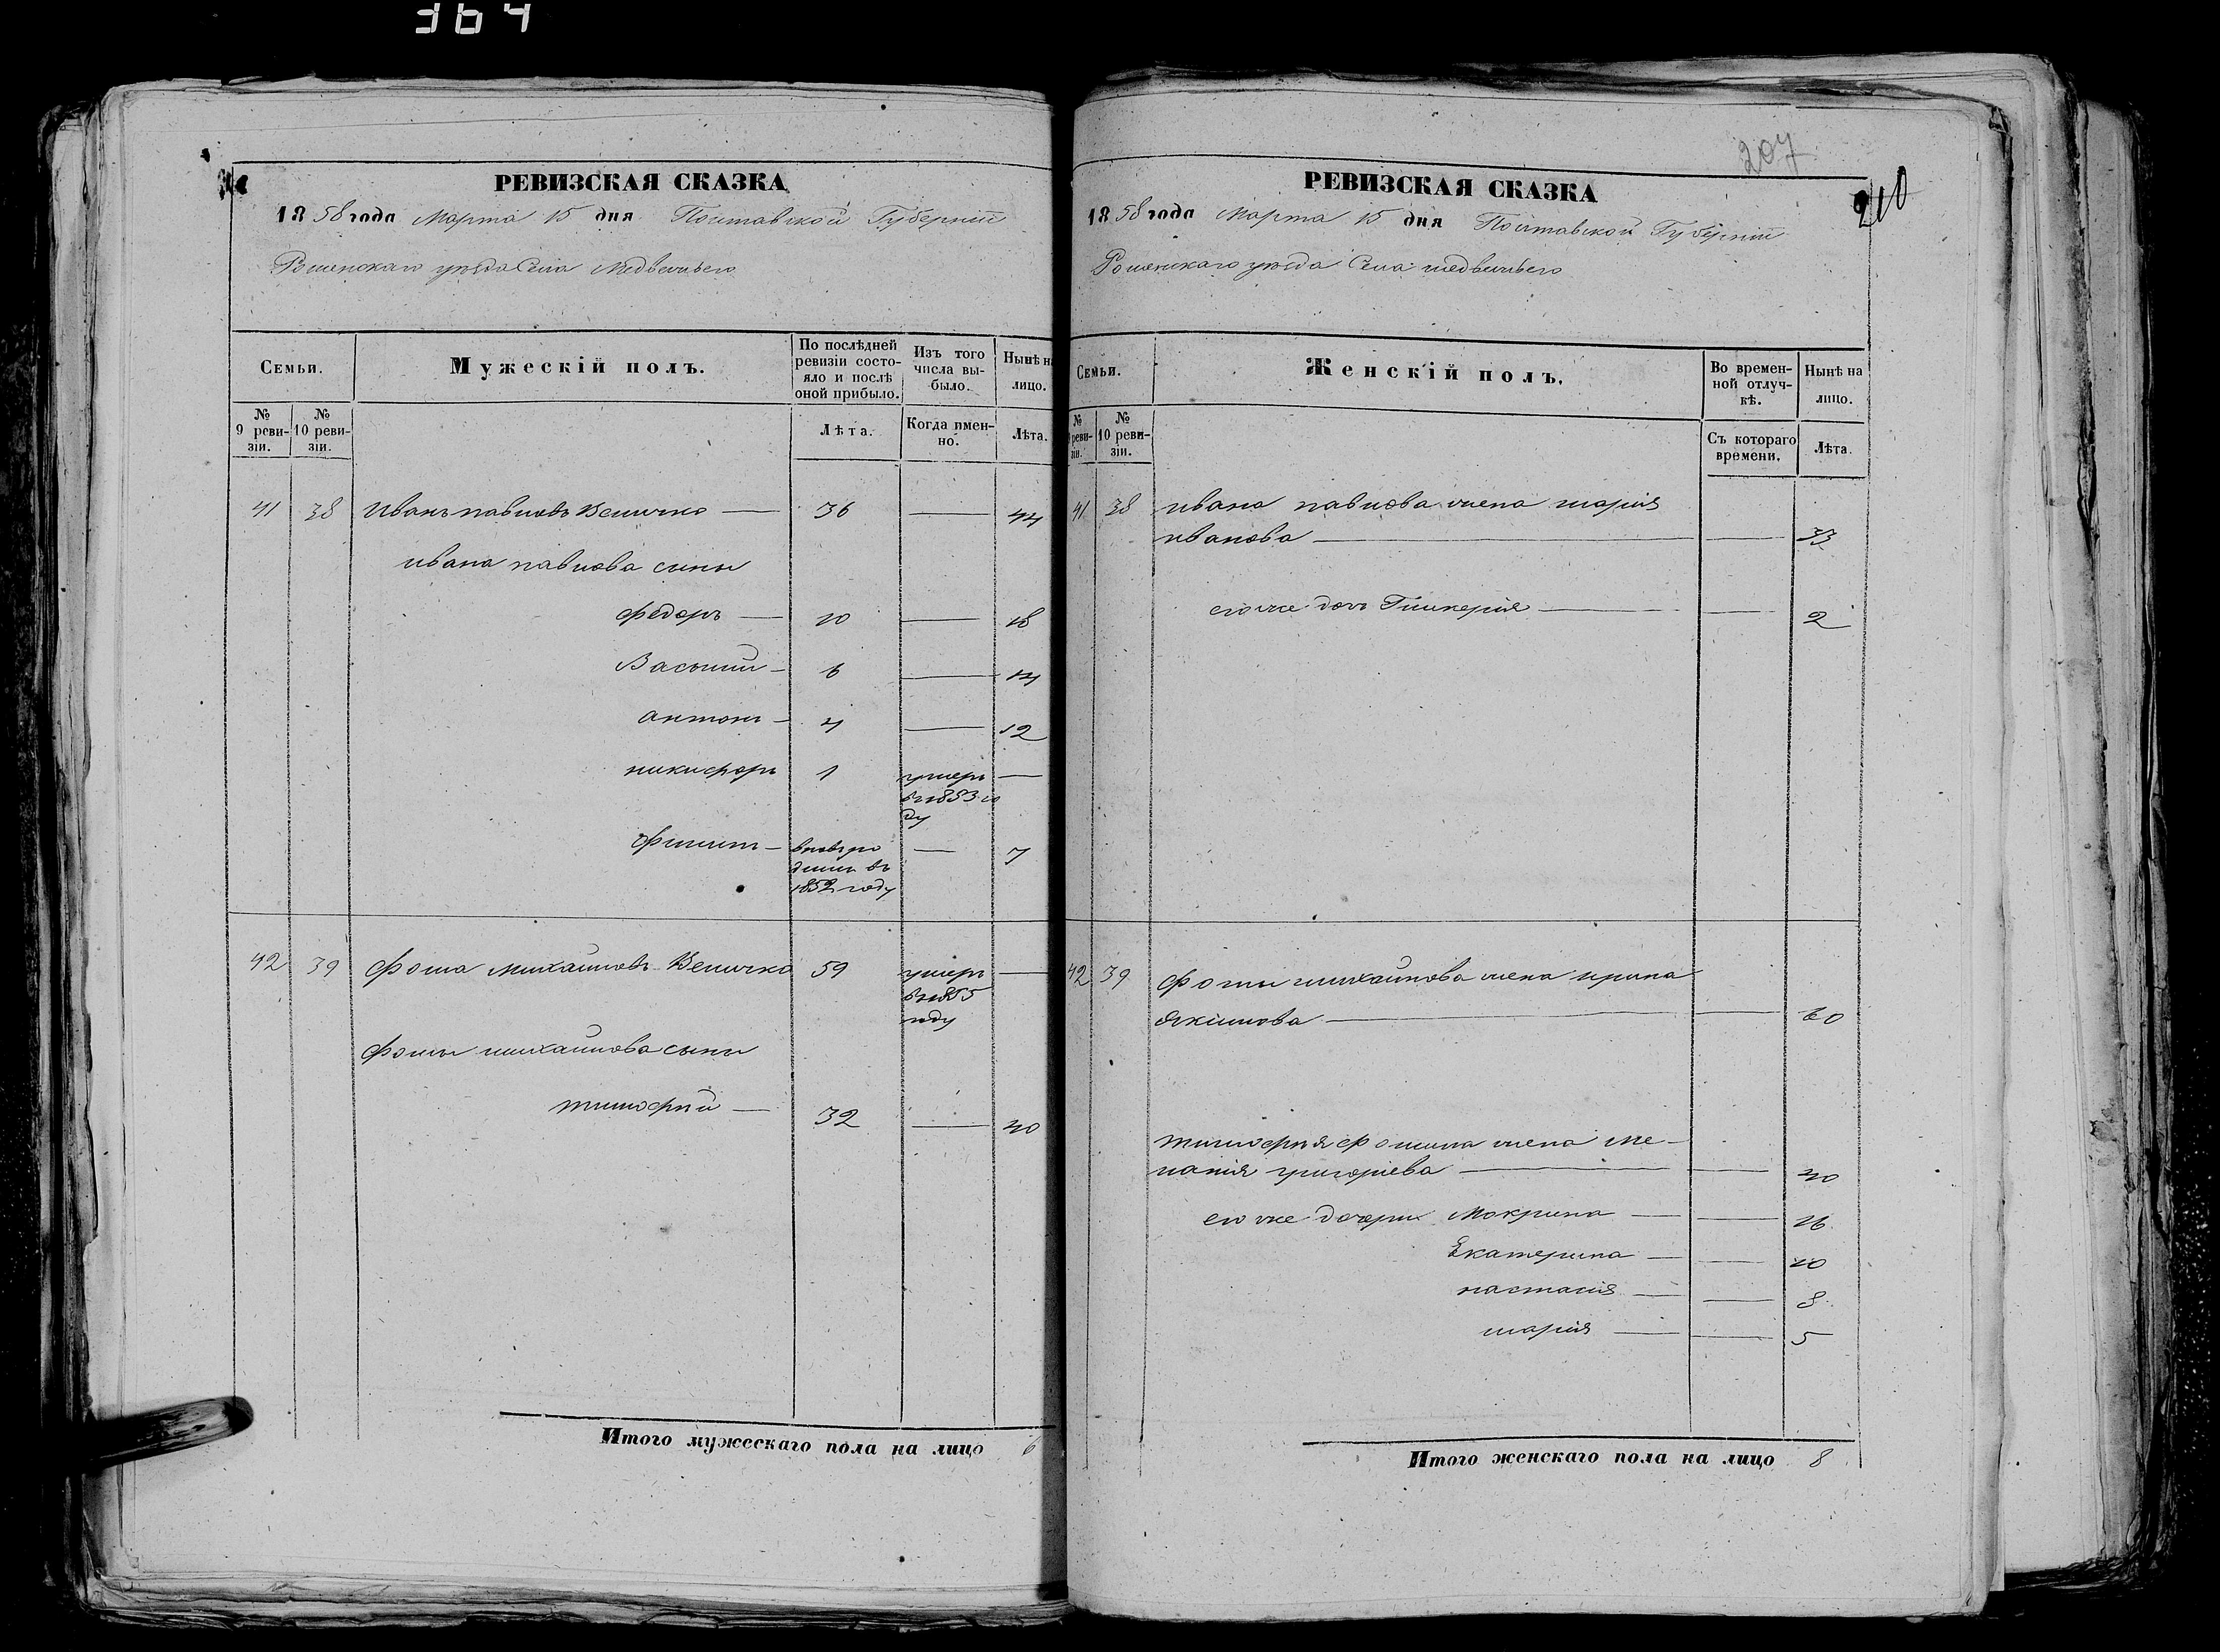 364
РЕВИЗСКАЯ СКАЗКА
1858 года Марта 15 дня Полтавской Губерніи
Роменскаго уѣзда Села Медвежьего
Семьи.
Мужескій полъ.
По послѣдней ревизіи состояло и послѣ оной прибыло.
Изъ того числа выбыло.
Нынѣ на лицо.
№ 9 ревизіи.
№ 10 ревизіи.
Лѣта.
Когда именно.
Лѣта.
41 38 Иванъ павловъ Величко — 36 — 44
ивана павлова сыны
федоръ — 10 — 18
Василий — 6 — 14
антонъ — 4 — 12
никифоръ 1 умеръ —
въ 1853 го
ду
Филипъ — вновь ро — 7
дился въ
1852 году
42 39 Фома михайловъ Величко 59 умеръ —
въ 1855
году
Фомы михайлова сыны
тимофѣй — 32 — 40
Итого мужескаго пола на лицо 6
207
210
РЕВИЗСКАЯ СКАЗКА
1858 года Марта 15 дня Полтавской Губерніи
Роменскаго уѣзда Села медвежьего
Семьи.
Женскій полъ.
Во временной отлучкѣ.
Нынѣ на лицо.
№ 9 ревизіи.
№ 10 ревизіи.
Съ котораго времени.
Лѣта.
41 38 ивана павлова жена марія
иванова — — 33
его же дочь Гликерія — — 2
42 39 Фомы михайлова жена ирина
Якимова — — 60
тимофѣя Фомина жена ме-
ланія григоріева — — 40
его же дочери Мокрина — — 16
Екатерина — — 10
настасія — — 8
марія — — 5
Итого женскаго пола на лицо 8